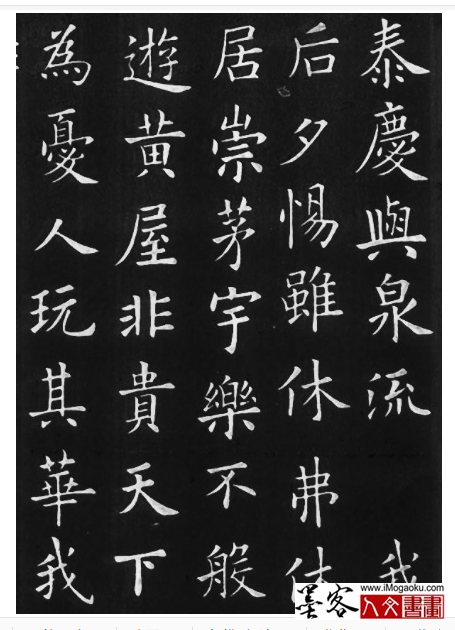 泰慶與泉流 我
后夕惕雖休弗休
居崇茅宇樂不般
遊黃屋非貴天下
為憂人玩其華我
墨客
www.iMogaoku.com
人文書畫